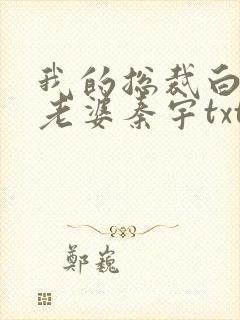 我的总裁白
老婆秦宇txt
郑巍